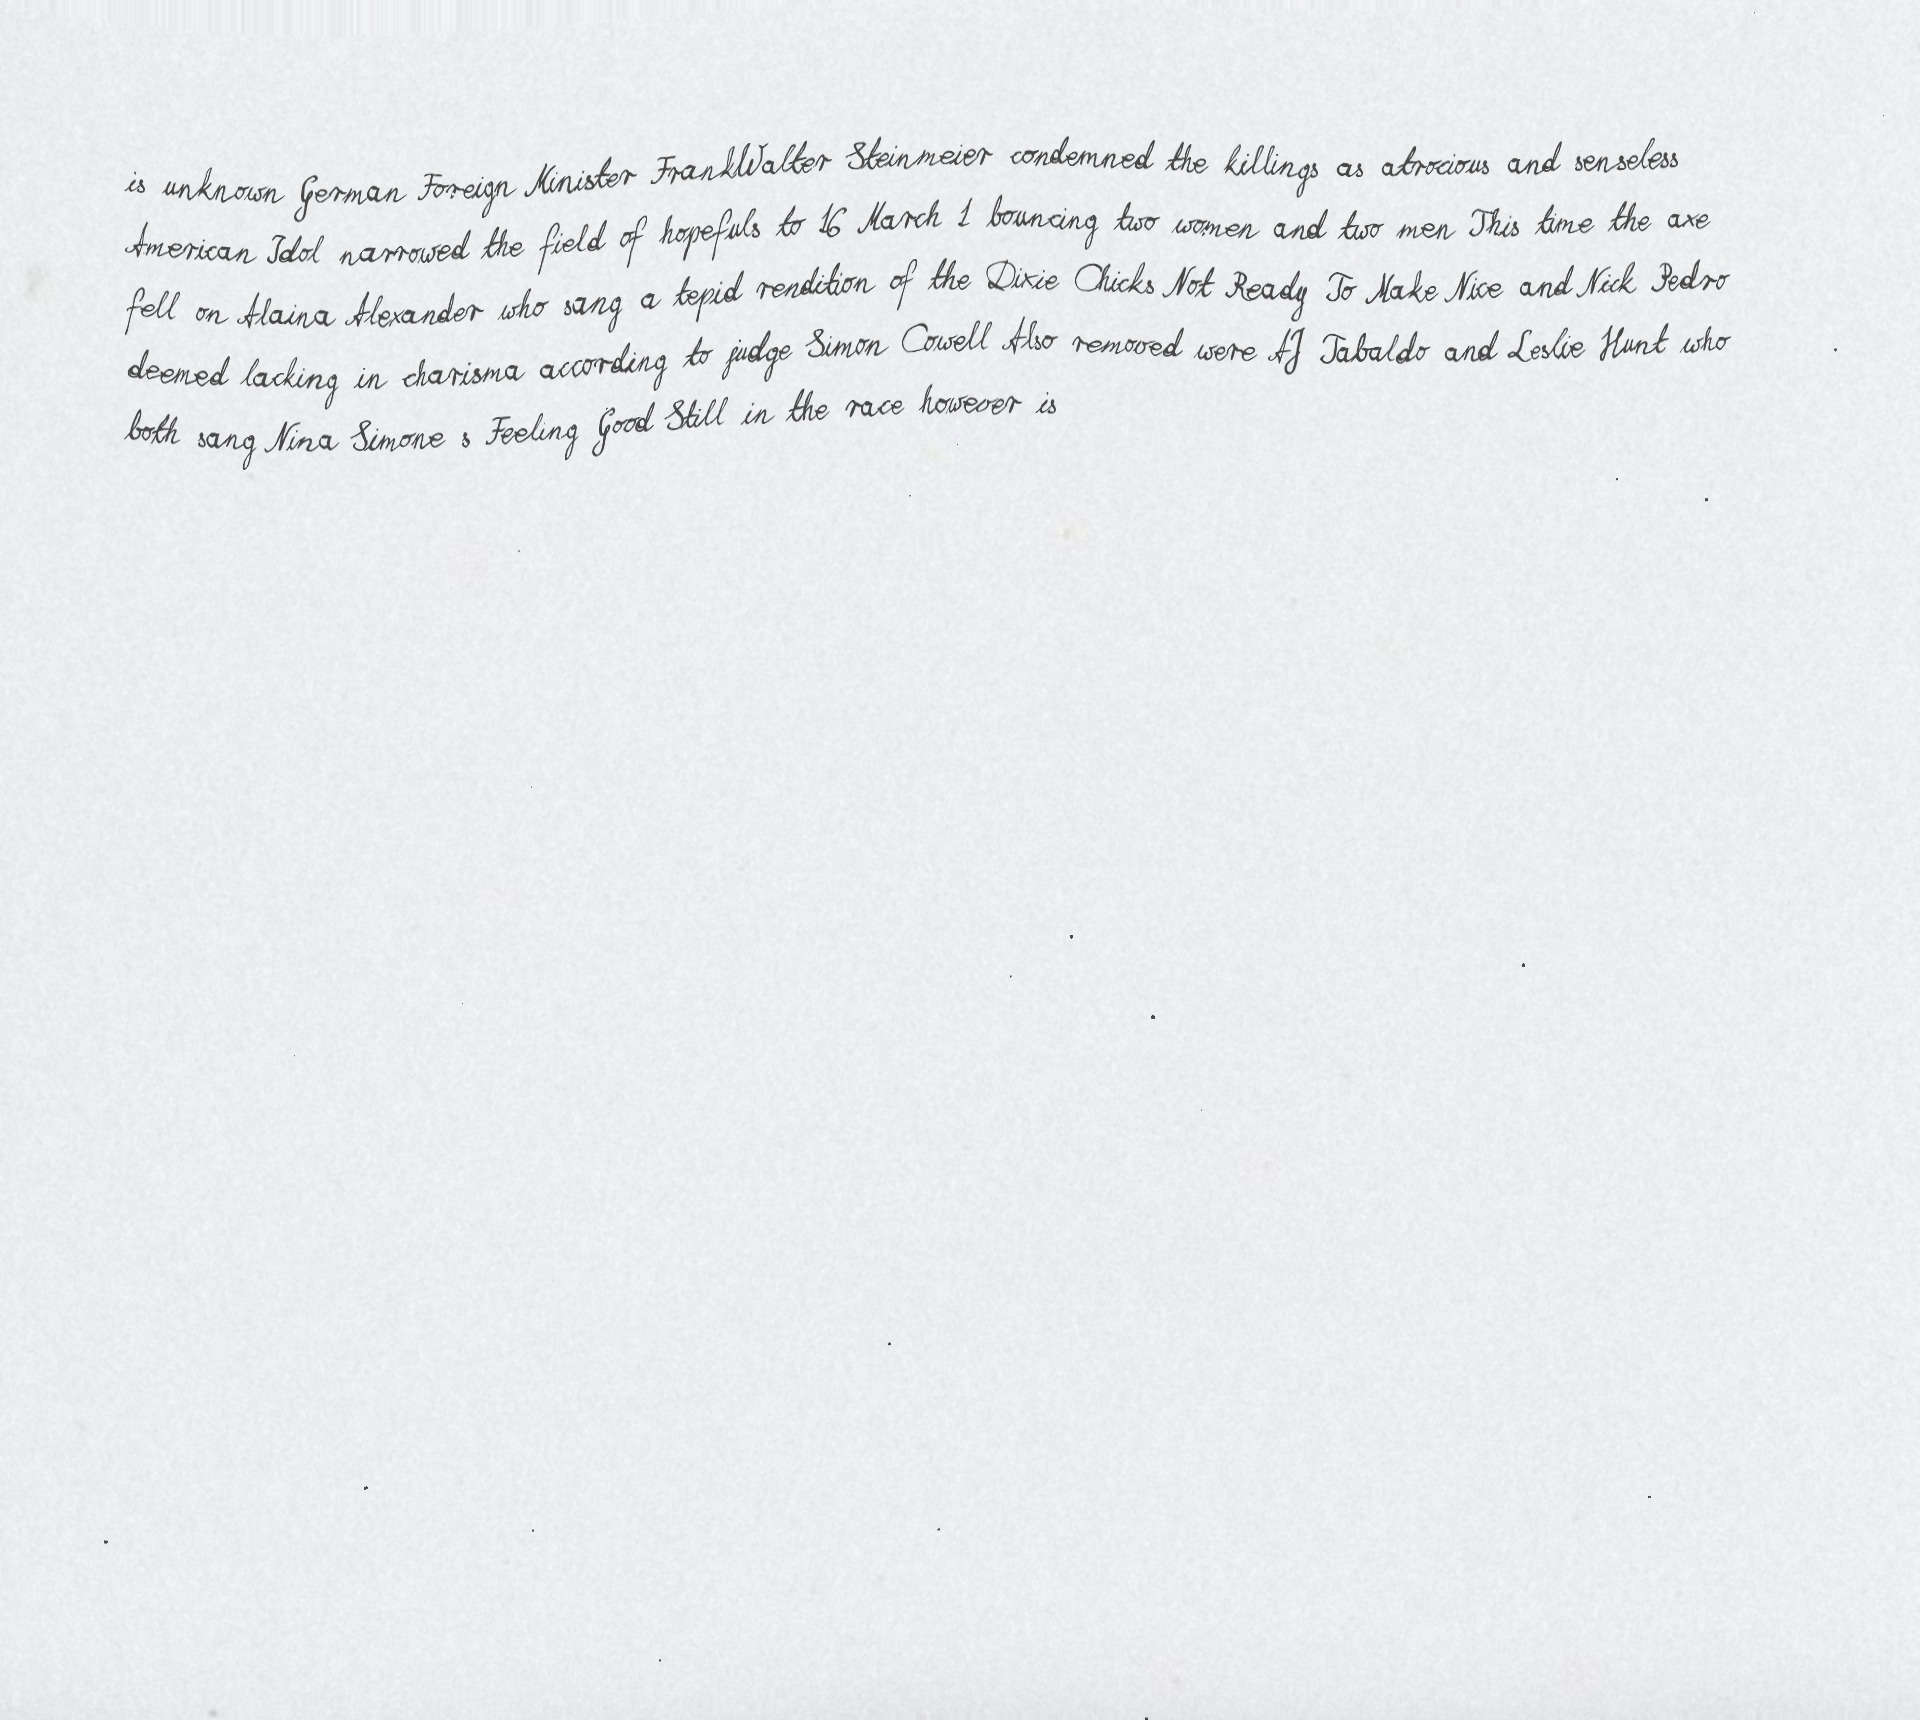 is unknown German Foreign Minister FrankWalter Steinmeier condemned the killings as atrocious and senseless
American Idol narrowed the field of hopefuls to 16 March 1 bouncing two women and two men This time the axe
fell on Alaina Alexander who sang a tepid rendition of the Dixie Chicks Not Ready To Make Nice and Nick Pedro
deemed lacking in charisma according to judge Simon Cowell Also removed were AJ Tabaldo and Leslie Hunt who
both sang Nina Simone s Feeling Good Still in the race however is